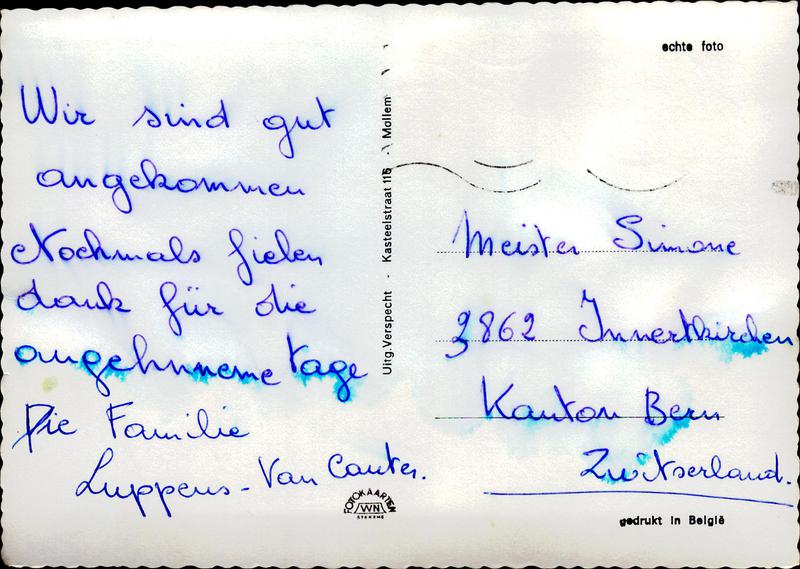 Wir sind gut
angekommen
Nochmals fielen
dank für die
angehnneme tage
Die Familie
Luppens - Van Cauter.
Uitg. Verspecht - Kasteelstraat 116 - Mollem
echte foto
Meister Simone
3862 Innertkirchen
Kanton Bern
Zwitserland.
FOTOKAARTEN
WN
STEKENE
gedrukt in België